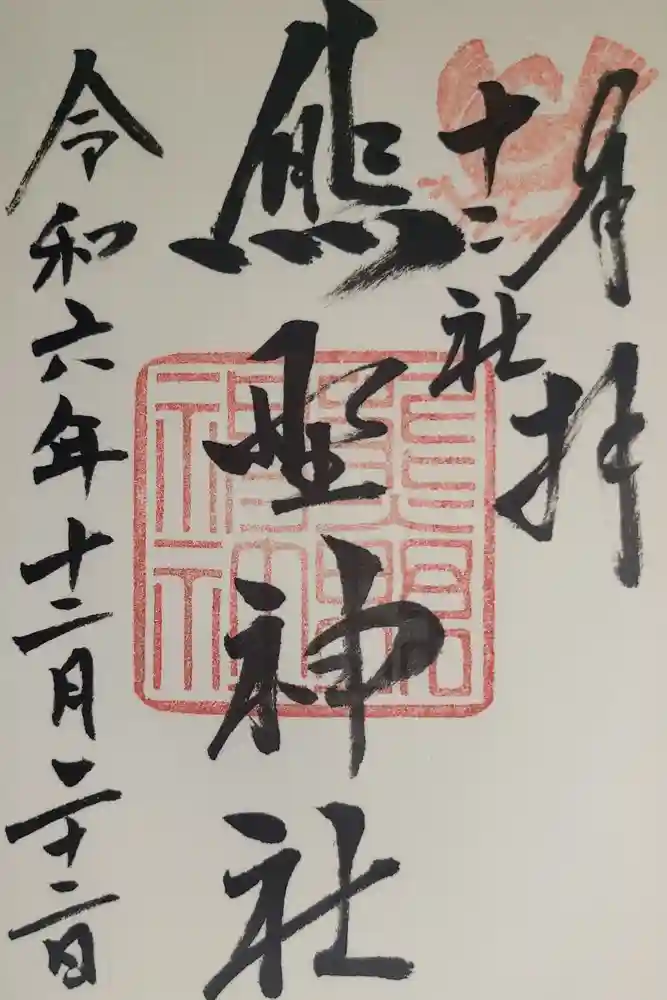 奉拝
十二社
熊野神社
令和六年十二月二十二日